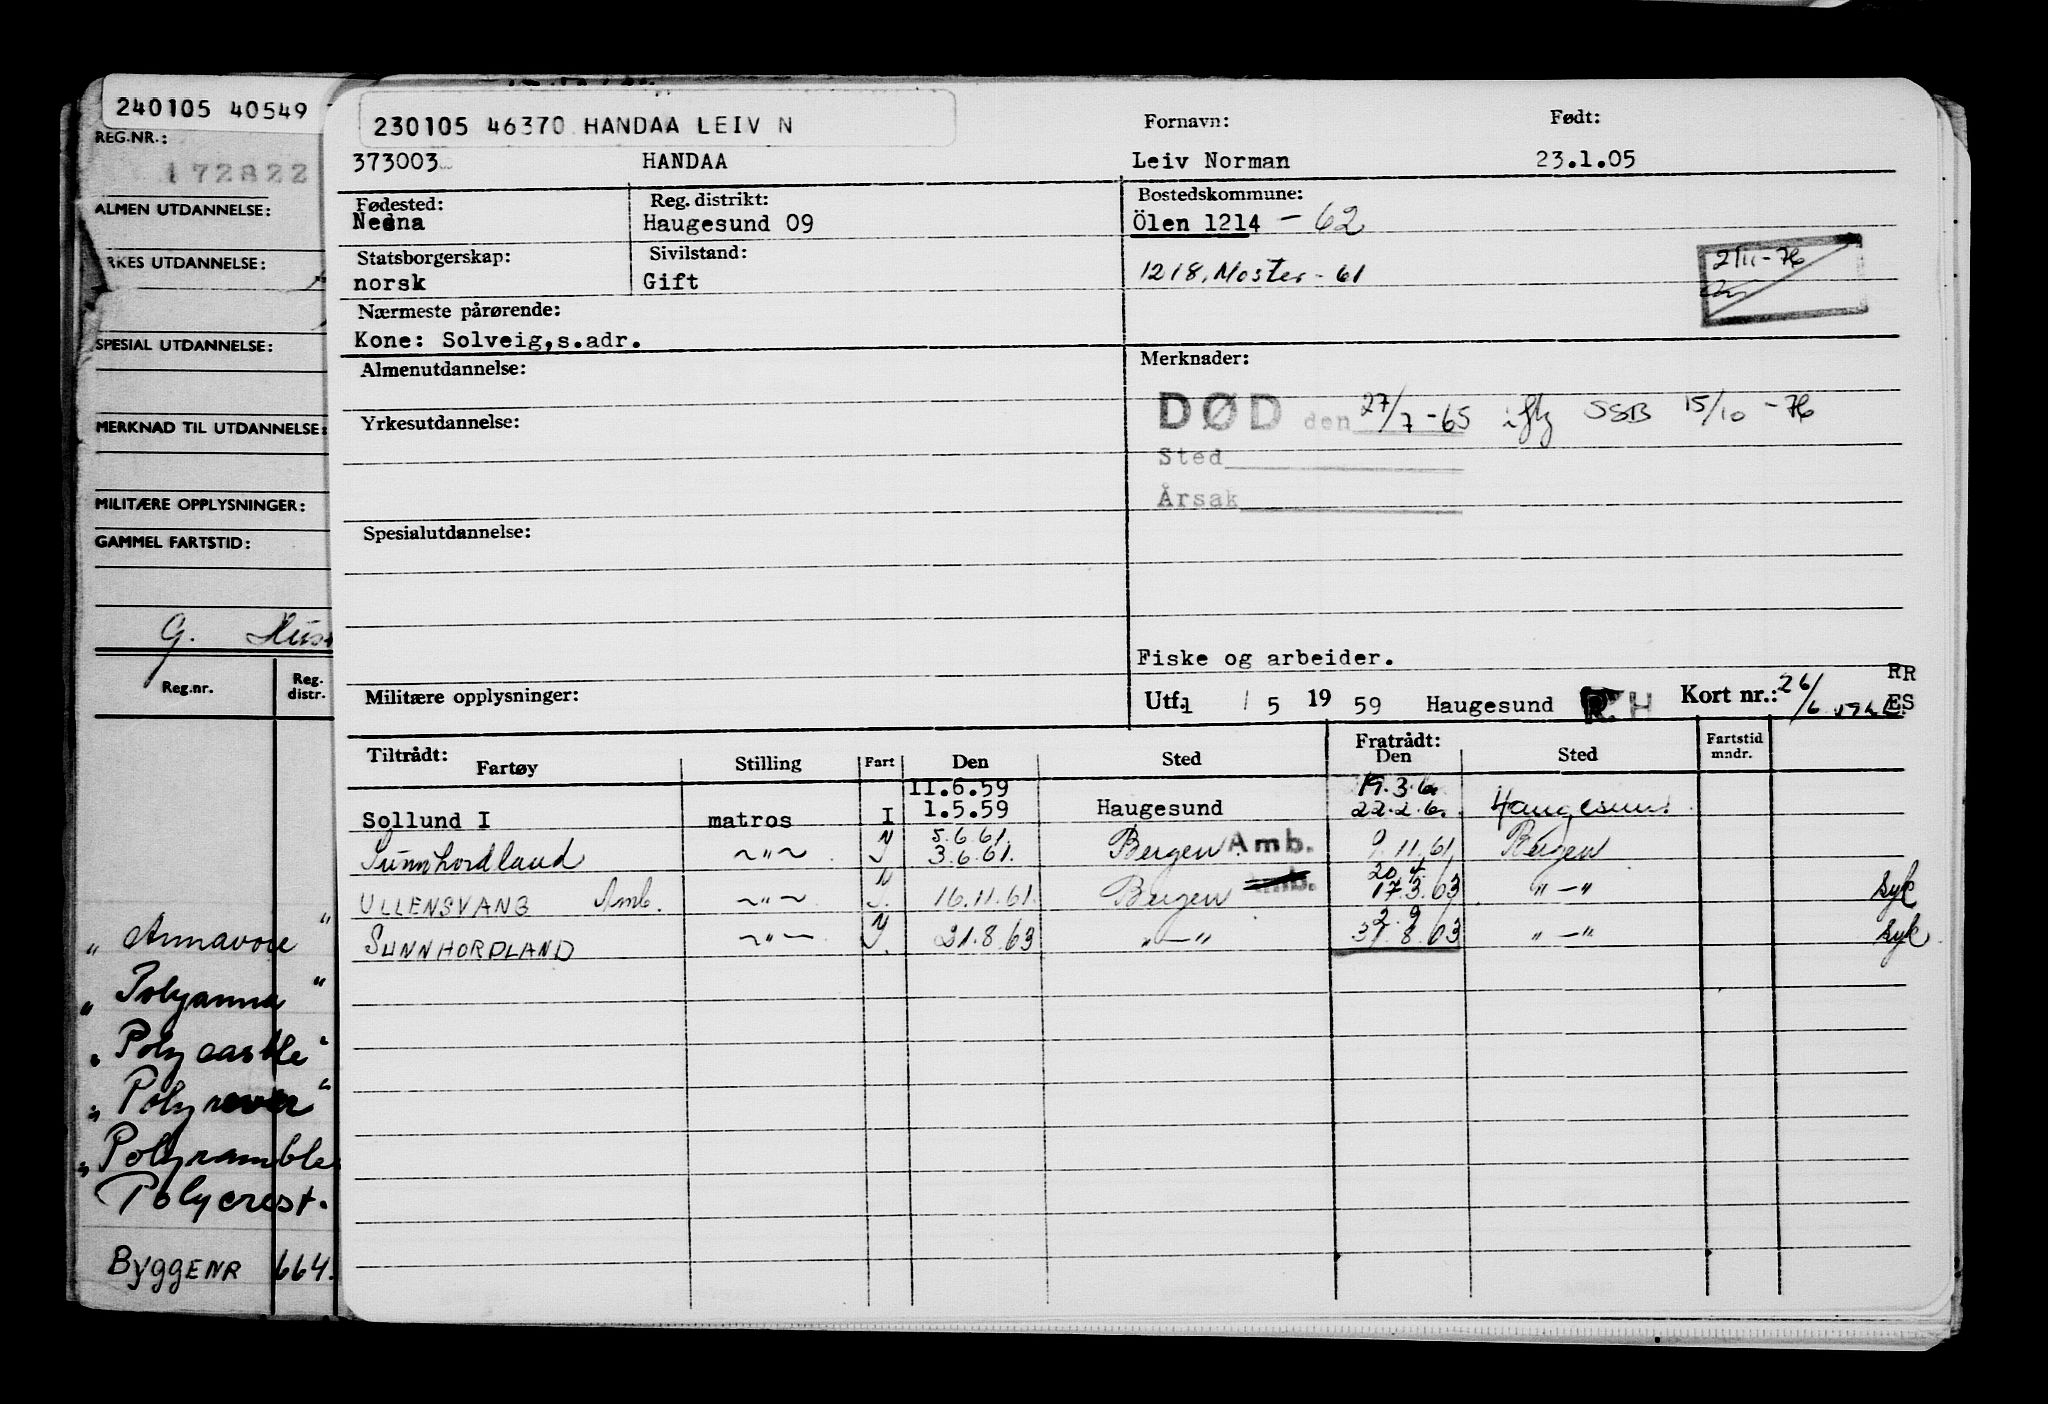 240105 40549
REG.NR.:
172822
ALMEN UTDANNELSE:
RKES UTDANNELSE:
SPESIAL UTDANNELSE:
MERKNAD TIL UTDANNELSE:
MILITÆRE OPPLYSNINGER:
GAMMEL FARTSTID:
G.
Reg.nr. Reg. distr.
" Annavore "
" Polyanna "
" Polycastle "
" Polyrover "
" Polyramble
Polycrest.
ByggeNR 664.
230105 46370 HANDAA LEIV N
Fornavn: Født:
373003 HANDAA Leiv Norman 23.1.05
Fødested: Reg. distrikt: Bostedskommune:
Nedna Haugesund 09 Ölen 1214 - 62
Statsborgerskap: Sivilstand:
norsk Gift 1218. Moster - 61
2/11-76
Nærmeste pårørende:
Kone: Solveig,s.adr.
Almenutdannelse: Merknader:
DØD den 27/7-65 iflg SSB 15/10-76
Yrkesutdannelse:
Sted
Årsak
Spesialutdannelse:
Fiske og arbeider.
Militære opplysninger: Utf. 1 / 5 19 59 Haugesund H Kort nr.: 26/6 RR
ES
Tiltrådt: Fratrådt:
Fartøy Stilling Fart Den Sted Den Sted Fartstid mndr.
11.6.59 19.3.6
Sollund I matros I 1.5.59 Haugesund 22.2.6 Haugesund
5.6.61.
Sunnhordland ~"~ I 3.6.61. Bergen Amb. 9.11.61 Bergen
20.4.
ULLENSVANG Amb. ~"~ 16.11.61. Bergen Amb. 17.3.63 "-" Syk
2.9
SUNNHORDLAND ~"~ 21.8.63 "-" 31.8.63 "-" Syk